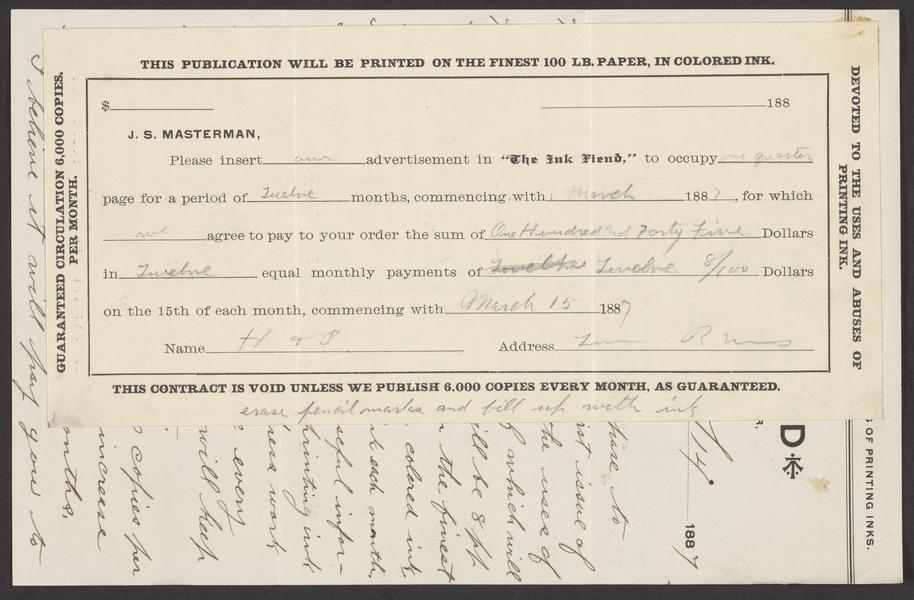 THIS PUBLICATION WILL BE PRINTED ON THE FINEST 100 LB. PAPER, IN COLORED INK.
GUARANTEED CIRCULATION 6,000 COPIES.
PER MONTH.
$ 188
J. S. MASTERMAN,
Please insert our advertisement in "The Ink Fiend," to occupy one quarter
page for a period of Twelve months, commencing with March 1887, for which
we agree to pay to your order the sum of One Hundred and Forty Five Dollars
in Twelve equal monthly payments of Twelve 8/100 Dollars
on the 15th of each month, commencing with March 15 1887
Name H & P Address
THIS CONTRACT IS VOID UNLESS WE PUBLISH 6,000 COPIES EVERY MONTH, AS GUARANTEED.
erase pencil marks and fill up with ink
DEVOTED TO THE USES AND ABUSES OF
PRINTING INK.
S OF PRINTING INKS.
D
1887
to
rst issue of
the uses of
f which will
ill be 8 pp
n the finest
colored ink
each month.
seful infor-
printing ink
work
every
will keep
copies per
increase
onths.
I believe it will pay you to